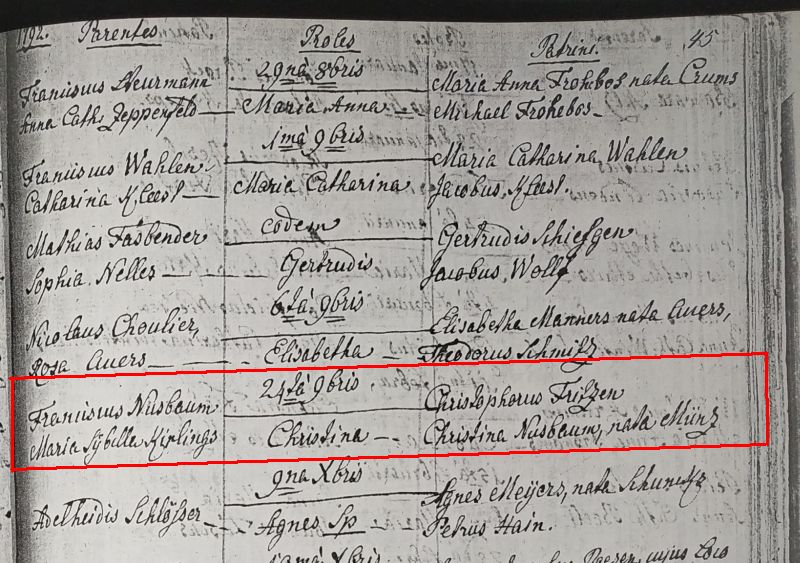 1792. Parentes Proles Patrini. 45
29na 8bris
Franciscus Heurmann Maria Anna Frohbos nata Crums
Anna Cath: Zeppenfeld — Maria Anna — Michael Frohbos —
1ma 9bris
Franciscus Wahlen Maria Catharina Wahlen
Catharina Kleesl — Maria Catharina Jacobus Kleesl.
eodem
Mathias Fasbender Gertrudis Schiefgen
Sophia Nelles — Gertrudis Jacobus Wolff
6ta 9bris
Nicolaus Choulier, Elisabetha Manners nata Auers,
Rosa Auers — Elisabetha — Theodorus Schmitz
24ta 9bris
Franciscus Nusbaum Christophorus Fritzen
Maria Sÿbilla Kirlings Christina — Christina Nusbaum, nata Münz
9na Xbris
Agnes Meijers, nata Schumitz
Adelheidis Schlösser — Agnes Sp Petrus Hain.
1ma Xbris